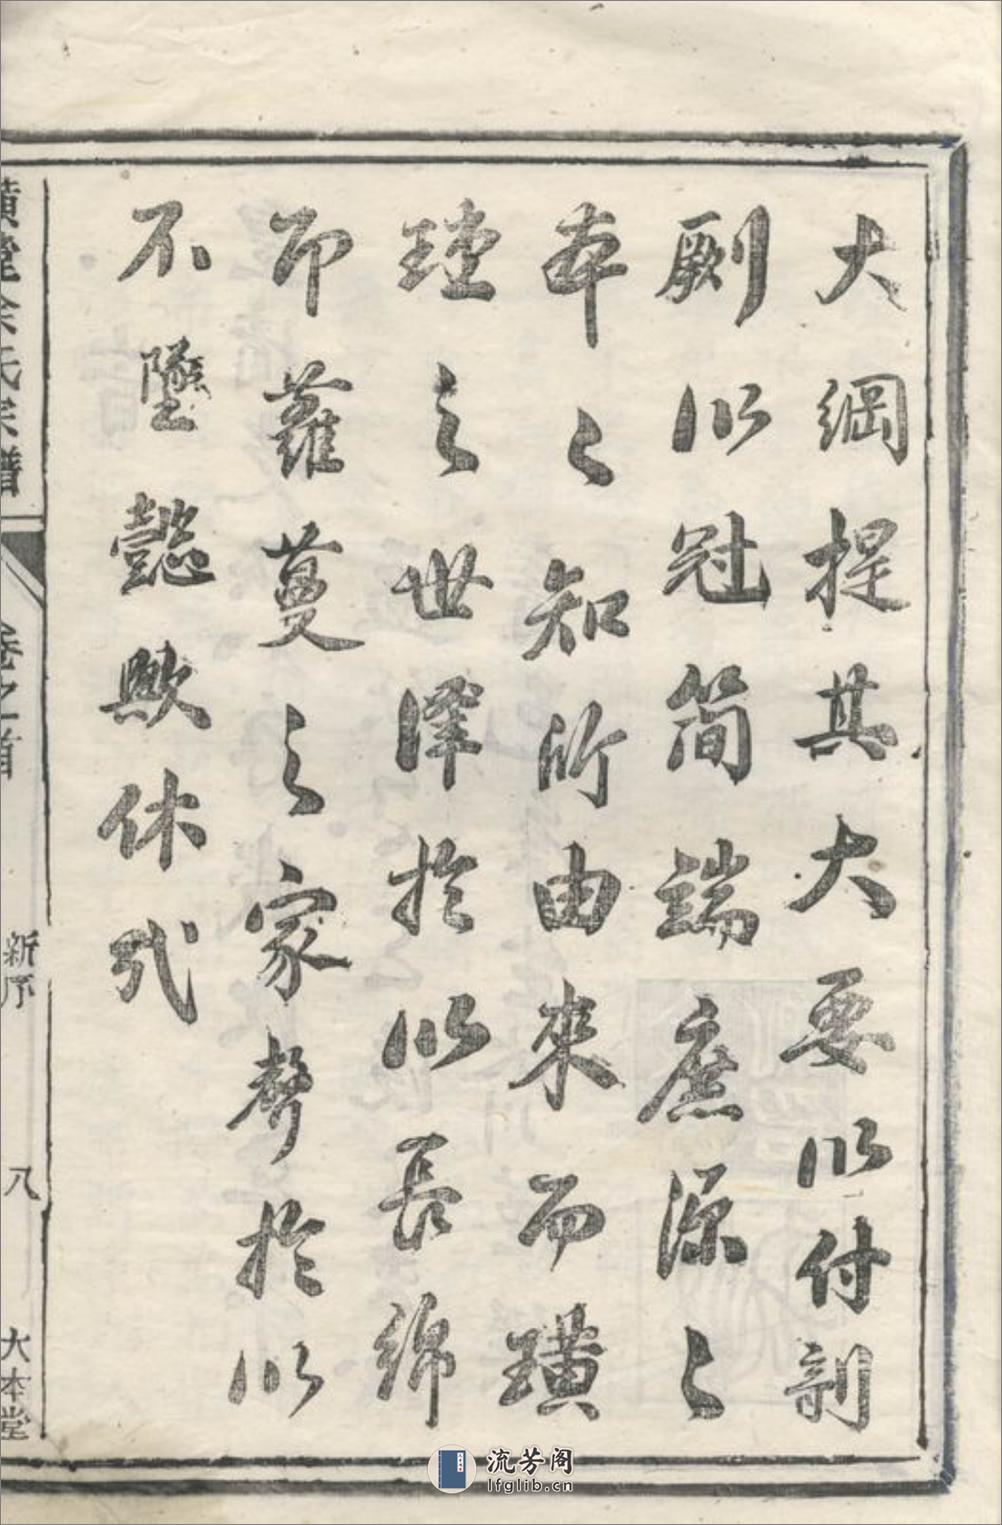 大綱提其大要以付剞
劂以冠简端庶源之
本之知所由來而璜
璮之世澤於以長綿
而蘿蔓之家聲於以
不墜懿歟休哉
璜璮余氏宗譜
卷之首
新序
八
大本堂
流芳阁
lfglib.cn